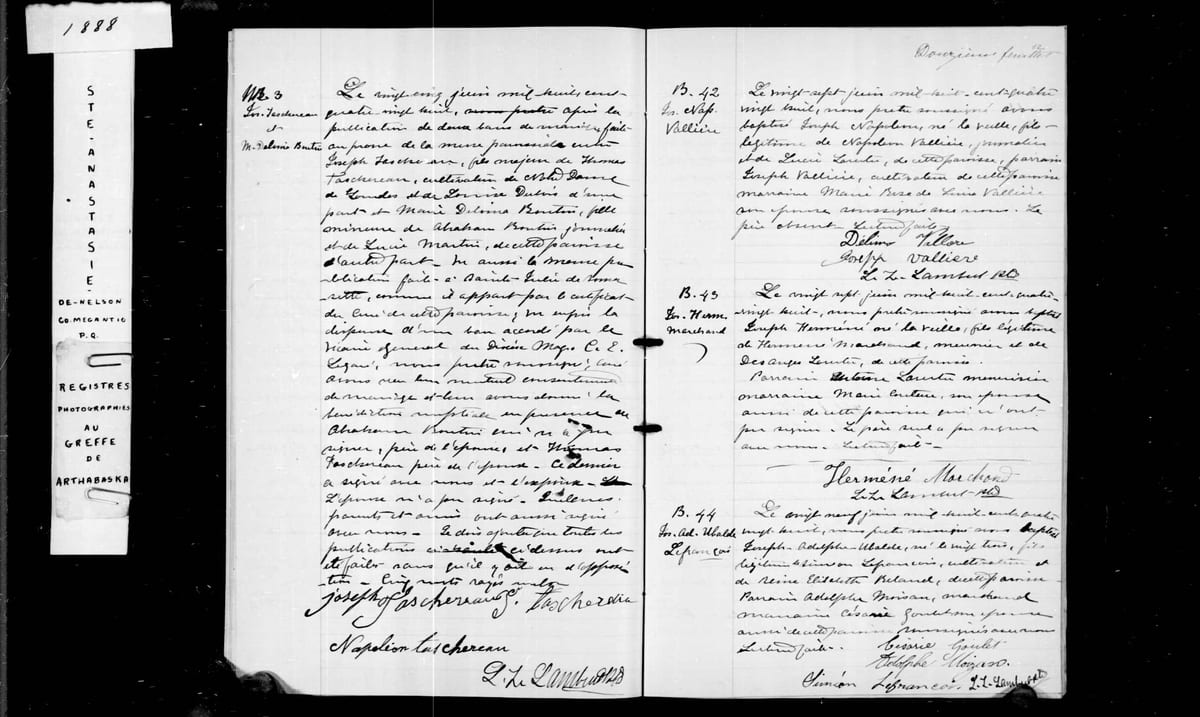 1888
STE-ANASTASIE-
DE-NELSON
CO. MEGANTIC
P.Q.
REGISTRES
PHOTOGRAPHIES
AU
GREFFE
DE
ARTHABASKA
M 3
Jos. Taschereau
et
M. Delvina Boutin
Le vingt cinq juin mil huit cent
quatre vingt huit, nous pretre après la
publication de deux bans de mariage faite
au prone de la messe paroissiale entre
Joseph Taschereau, fils majeur de Thomas
Taschereau, cultivateur de Notre Dame
de Lourdes et de Louise Dubois d'une
part et Marie Delvina Boutin, fille
mineure de Abraham Boutin journalier
et de Lucie Martin, de cette paroisse
d'autre part - Vu aussi la meme pu
blication faite à Sainte Julie de Somer
sette, comme il appert par le certificat
du Curé de cette paroisse; Vu enfin la
dispense d'un ban accordé par le
Vicaire général du Diocèse Mgr. C. E.
Legaré, nous pretre soussigné, Curé
avons reçu leur mutuel consentement
de mariage et leur avons donné la
bénédiction nuptiale en presence de
Abraham Boutin qui n'a pu
signer, père de l'épouse, et Thomas
Taschereau père de l'époux - Ce dernier
a signé avec nous et l'époux -
L'épouse n'a pu signé - Quelques
parents et amis ont aussi signé
avec nous - Je dois ajouter que toutes les
publications ci-dessus ont
été faites sans qu'il y ait eu d'opposi
tion - Cinq mots rayés nuls
joseph Taschereau T. Taschereau
Napoléon taschereau
L. Z. Lambert Ptre
Douzième feuillet
B. 42
Jos. Nap.
Vallière
Le vingt sept juin mil huit cent quatre
vingt huit, nous pretre soussigné avons
baptisé Joseph Napoléon, né la veille, fils
légitime de Napoléon Vallière, journalier
et de Lucie Laurtie, de cette paroisse, parrain
Joseph Vallière, cultivateur de cette paroisse
marraine Marie Vallière
son épouse soussignés avec nous. Le
père absent Lecture faite
Délima Vallere
Joseph Valliere
L. Z. Lambert Ptre
B. 43
Jos. Herm.
Marchand
Le vingt sept juin mil huit cent quatre
vingt huit, nous pretre soussigné avons baptisé
Joseph Herméné né la veille, fils légitime
de Herméné Marchand, meunier et de
Desanges, de cette paroisse
Parrain menuisier
marraine Marie Couture, son épouse
aussi de cette paroisse qui n'ont
pu signer - Le père seul a pu signer
avec nous - Lecture faite -
Herméné Marchand
L. Z. Lambert Ptre
B. 44
Jos. Ad. Ubalde
Lefrançois
Le vingt neuf juin mil huit cent quatre
vingt huit, nous pretre soussigné avons baptisé
Joseph-Adolphe-Ubalde, né le vingt trois, fils
légitime de Simeon Lefrançois, cultivateur et
de Reine Elisabeth Beland, de cette paroisse
Parrain Adolphe Moisan, marchand
marraine Césarie Goulet son épouse
aussi de cette paroisse, soussignés avec nous
Lecture faite.
Cisarie Goulet
Adolphe Moisan.
Siméon Lefrancois L. Z. Lambert Ptre